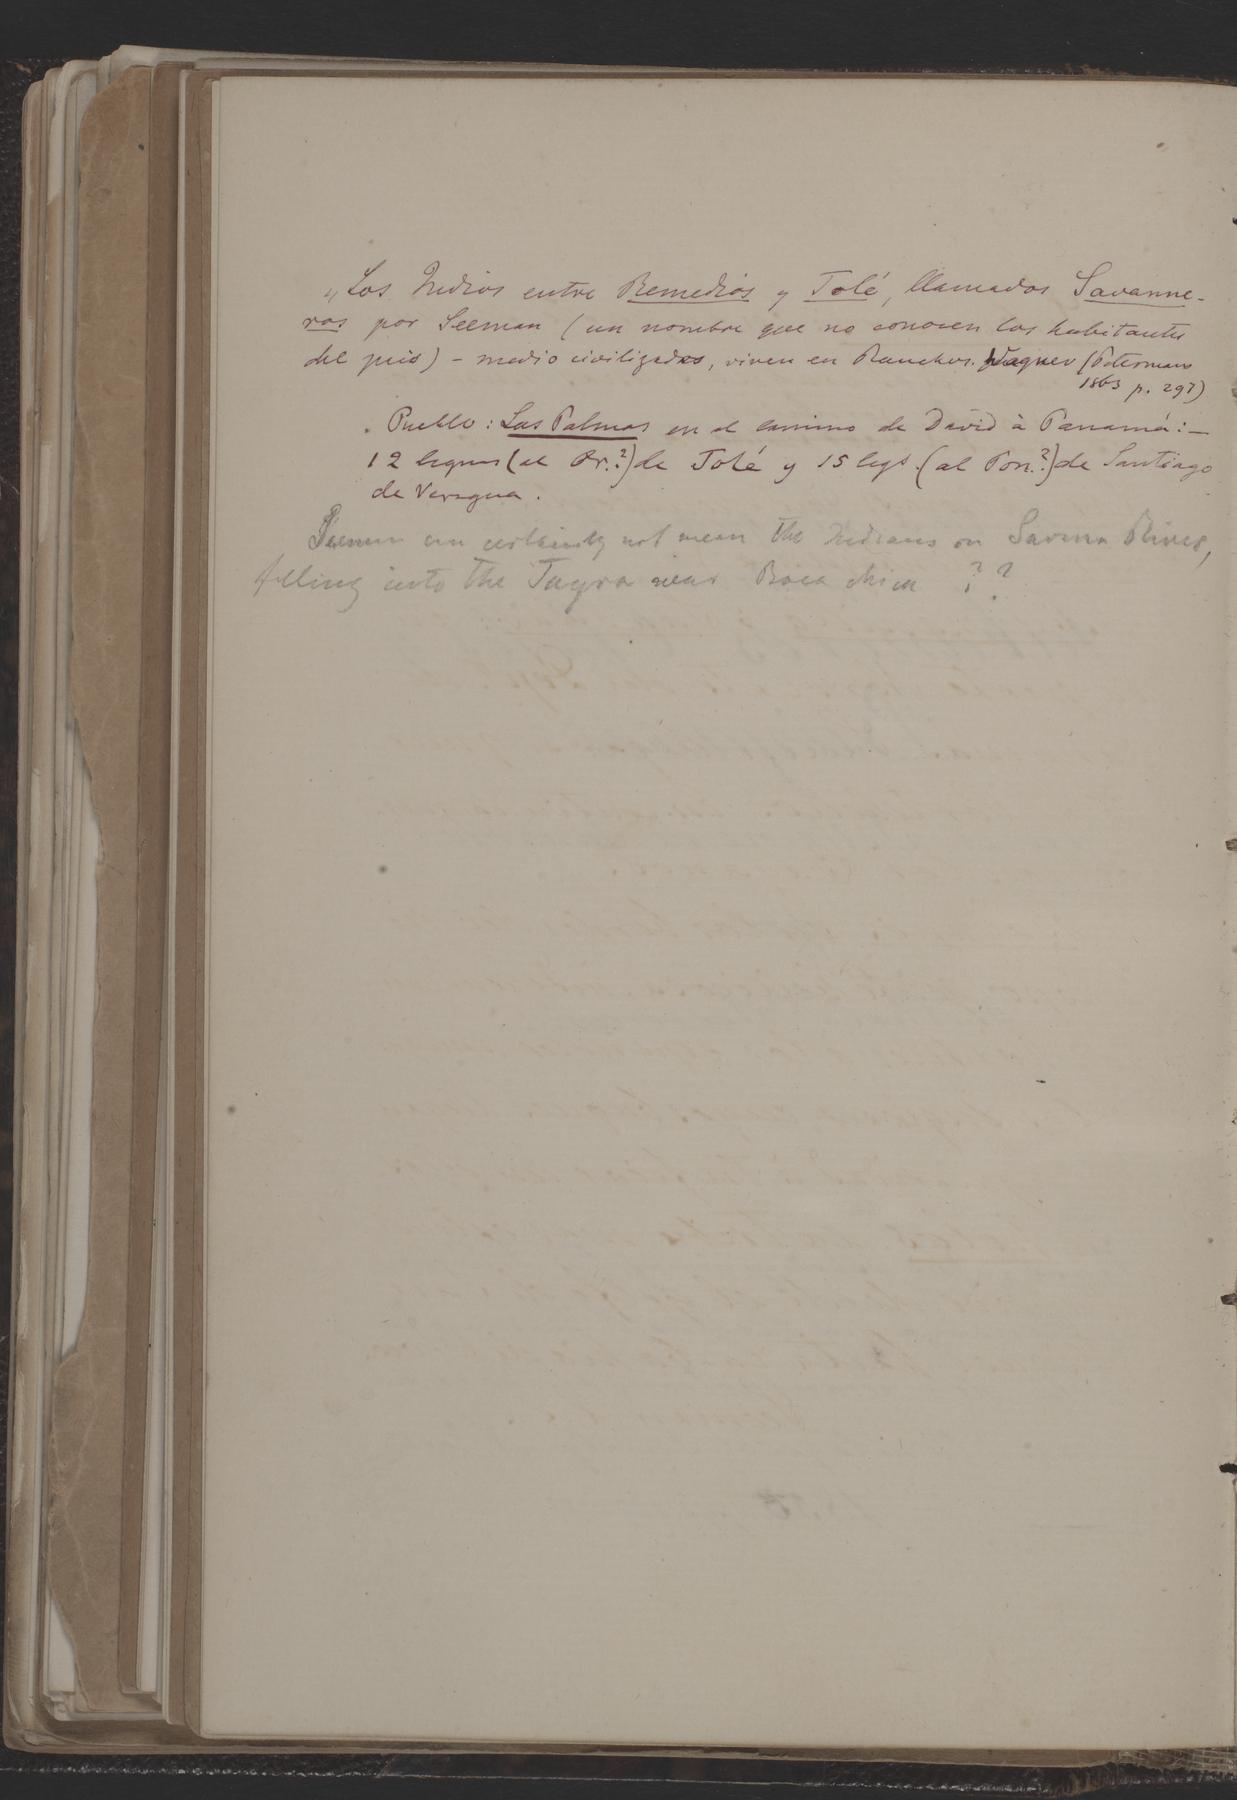 „Los Indios entre Remedios y Tolé, llamados Savanne-
ros por Seeman (un nombre que no conocen los habitantes
del pais) – medio civilizados, viven en Ranchos. Wagner (Peterman
1863 p. 297)
Pueblo: Las Palmas en el camino de David à Panamá:—
12 leguas (al Or.?) de Tolé y 15 legs. (al Pon.?) de Santiago
de Veragua.
Seeman can certainly not mean the Indians on Savana River,
falling into the Tuyra near Boca chica ??